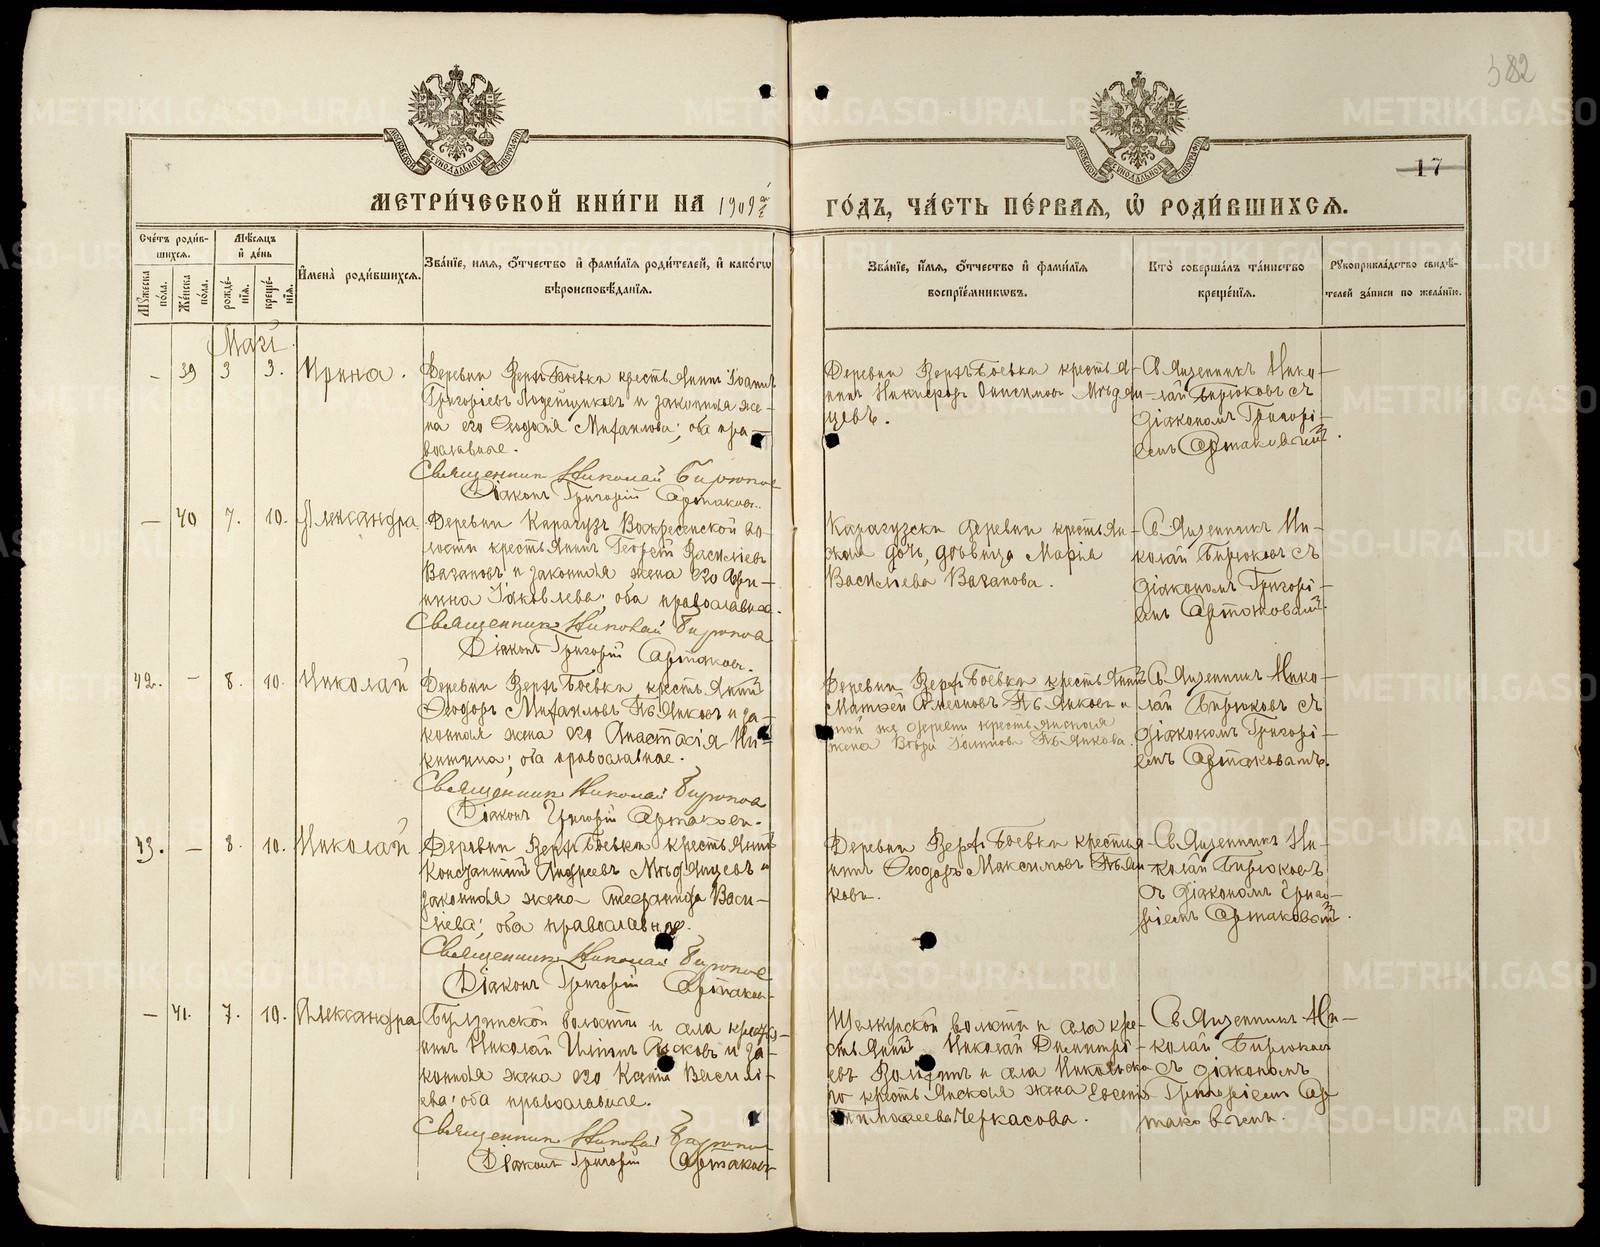 382
17
МЕТРИ́ЧЕСКОЙ КНИ́ГИ НА 1909й
ГО́ДЪ, ЧА́СТЬ ПЕ́РВАЯ, Ѡ҆ РОДИ́ВШИХСѦ.
Сче́тъ роди́в-
шихсѧ.
Мꙋ́жеска по́ла.
Же́нска по́ла.
Мѣ́сѧцъ
и҆ де́нь
рожде́-
нїѧ.
креще́-
нїѧ.
И҆мена̀ роди́вшихсѧ.
Зва́нїе, и҆мѧ, ѻ҆́тчество и҆ фами́лїѧ роди́телей, и҆ како́гѡ
вѣроисповѣ́данїѧ.
Зва́нїе, и҆́мѧ, ѻ҆́тчество и҆ фами́лїѧ
воспрїе́мникѡвъ.
Кто̀ соверша́лъ та́инство
креще́нїѧ.
Рꙋкоприкла́дство свидѣ́-
телей за́писи по жела́нїю.
Маій
– 39 3 3. Ирина.
Деревни Верхъ Боевки крестьянинъ Іоаннъ
Григоріевъ и законная же-
на его Ѳеодосія Михаилова; оба пра-
вославные.
Священникъ Николай Бирюковъ
Діаконъ Григорій Артаковъ.
Деревни Верхъ Боевки крестья-
нинъ Никифоръ Онисимовъ
Священникъ Нико-
лай Бирюковъ съ
діакономъ Григорі-
емъ
– 40 7. 10. Александра
Деревни Карагузъ Воскресенской во-
лости крестьянинъ Георгій Василіевъ
Вагановъ и законная жена его Ири-
нна Іаковлева; оба православные.
Священникъ Николай Бирюковъ
Діаконъ Григорій Артаковъ.
Карагузски деревни крестьян-
дочь, дѣвица Марія
Василіева Ваганова.
Священникъ Ни-
колай Бирюковъ съ
діакономъ Григорі-
емъ
42. – 8. 10. Николай
Деревни Верхъ Боевки крестьянинъ
Ѳеодоръ Михаиловъ Пьянковъ и за-
конная жена его Анастасія Ни-
китина; оба православные.
Священникъ Николай Бирюковъ
Діаконъ Григорій Артаковъ.
Деревни Верхъ Боевки крестьянинъ
Матѳей Симеоновъ Пьянковъ и
той же деревни крестьянская
жена Пьянкова.
Священникъ Нико-
лай Бирюковъ съ
діакономъ Григорі-
емъ Артаковымъ.
43. – 8. 10. Николай
Деревни Верхъ Боевки крестьянинъ
Константинъ Андреевъ и
законная жена Стефанида Васи-
ліева; оба православные.
Священникъ Николай Бирюковъ
Діаконъ Григорій Артаковъ
Деревни Верхъ Боевки крестья-
нинъ Ѳеодоръ Максимовъ Пьян-
ковъ.
Священникъ Ни-
колай Бирюковъ
съ діакономъ Григо-
ріемъ
– 41. 7. 10. Александра
волости и села крестья-
нинъ Николай Ильинъ и за-
конная жена его Ксенія Василі-
ева; оба православные.
Священникъ Николай Бирюковъ
Діаконъ Григорій Артаковъ
Щелкунской волости и села кре-
стьянинъ Николай Димитрі-
евъ и села Никольска-
го крестьянская жена Евгенія
Черкасова.
Священникъ Ни-
колай Бирюковъ
съ діакономъ
Григоріемъ Ар-
таковымъ.
METRIKI.GASO-URAL.RU